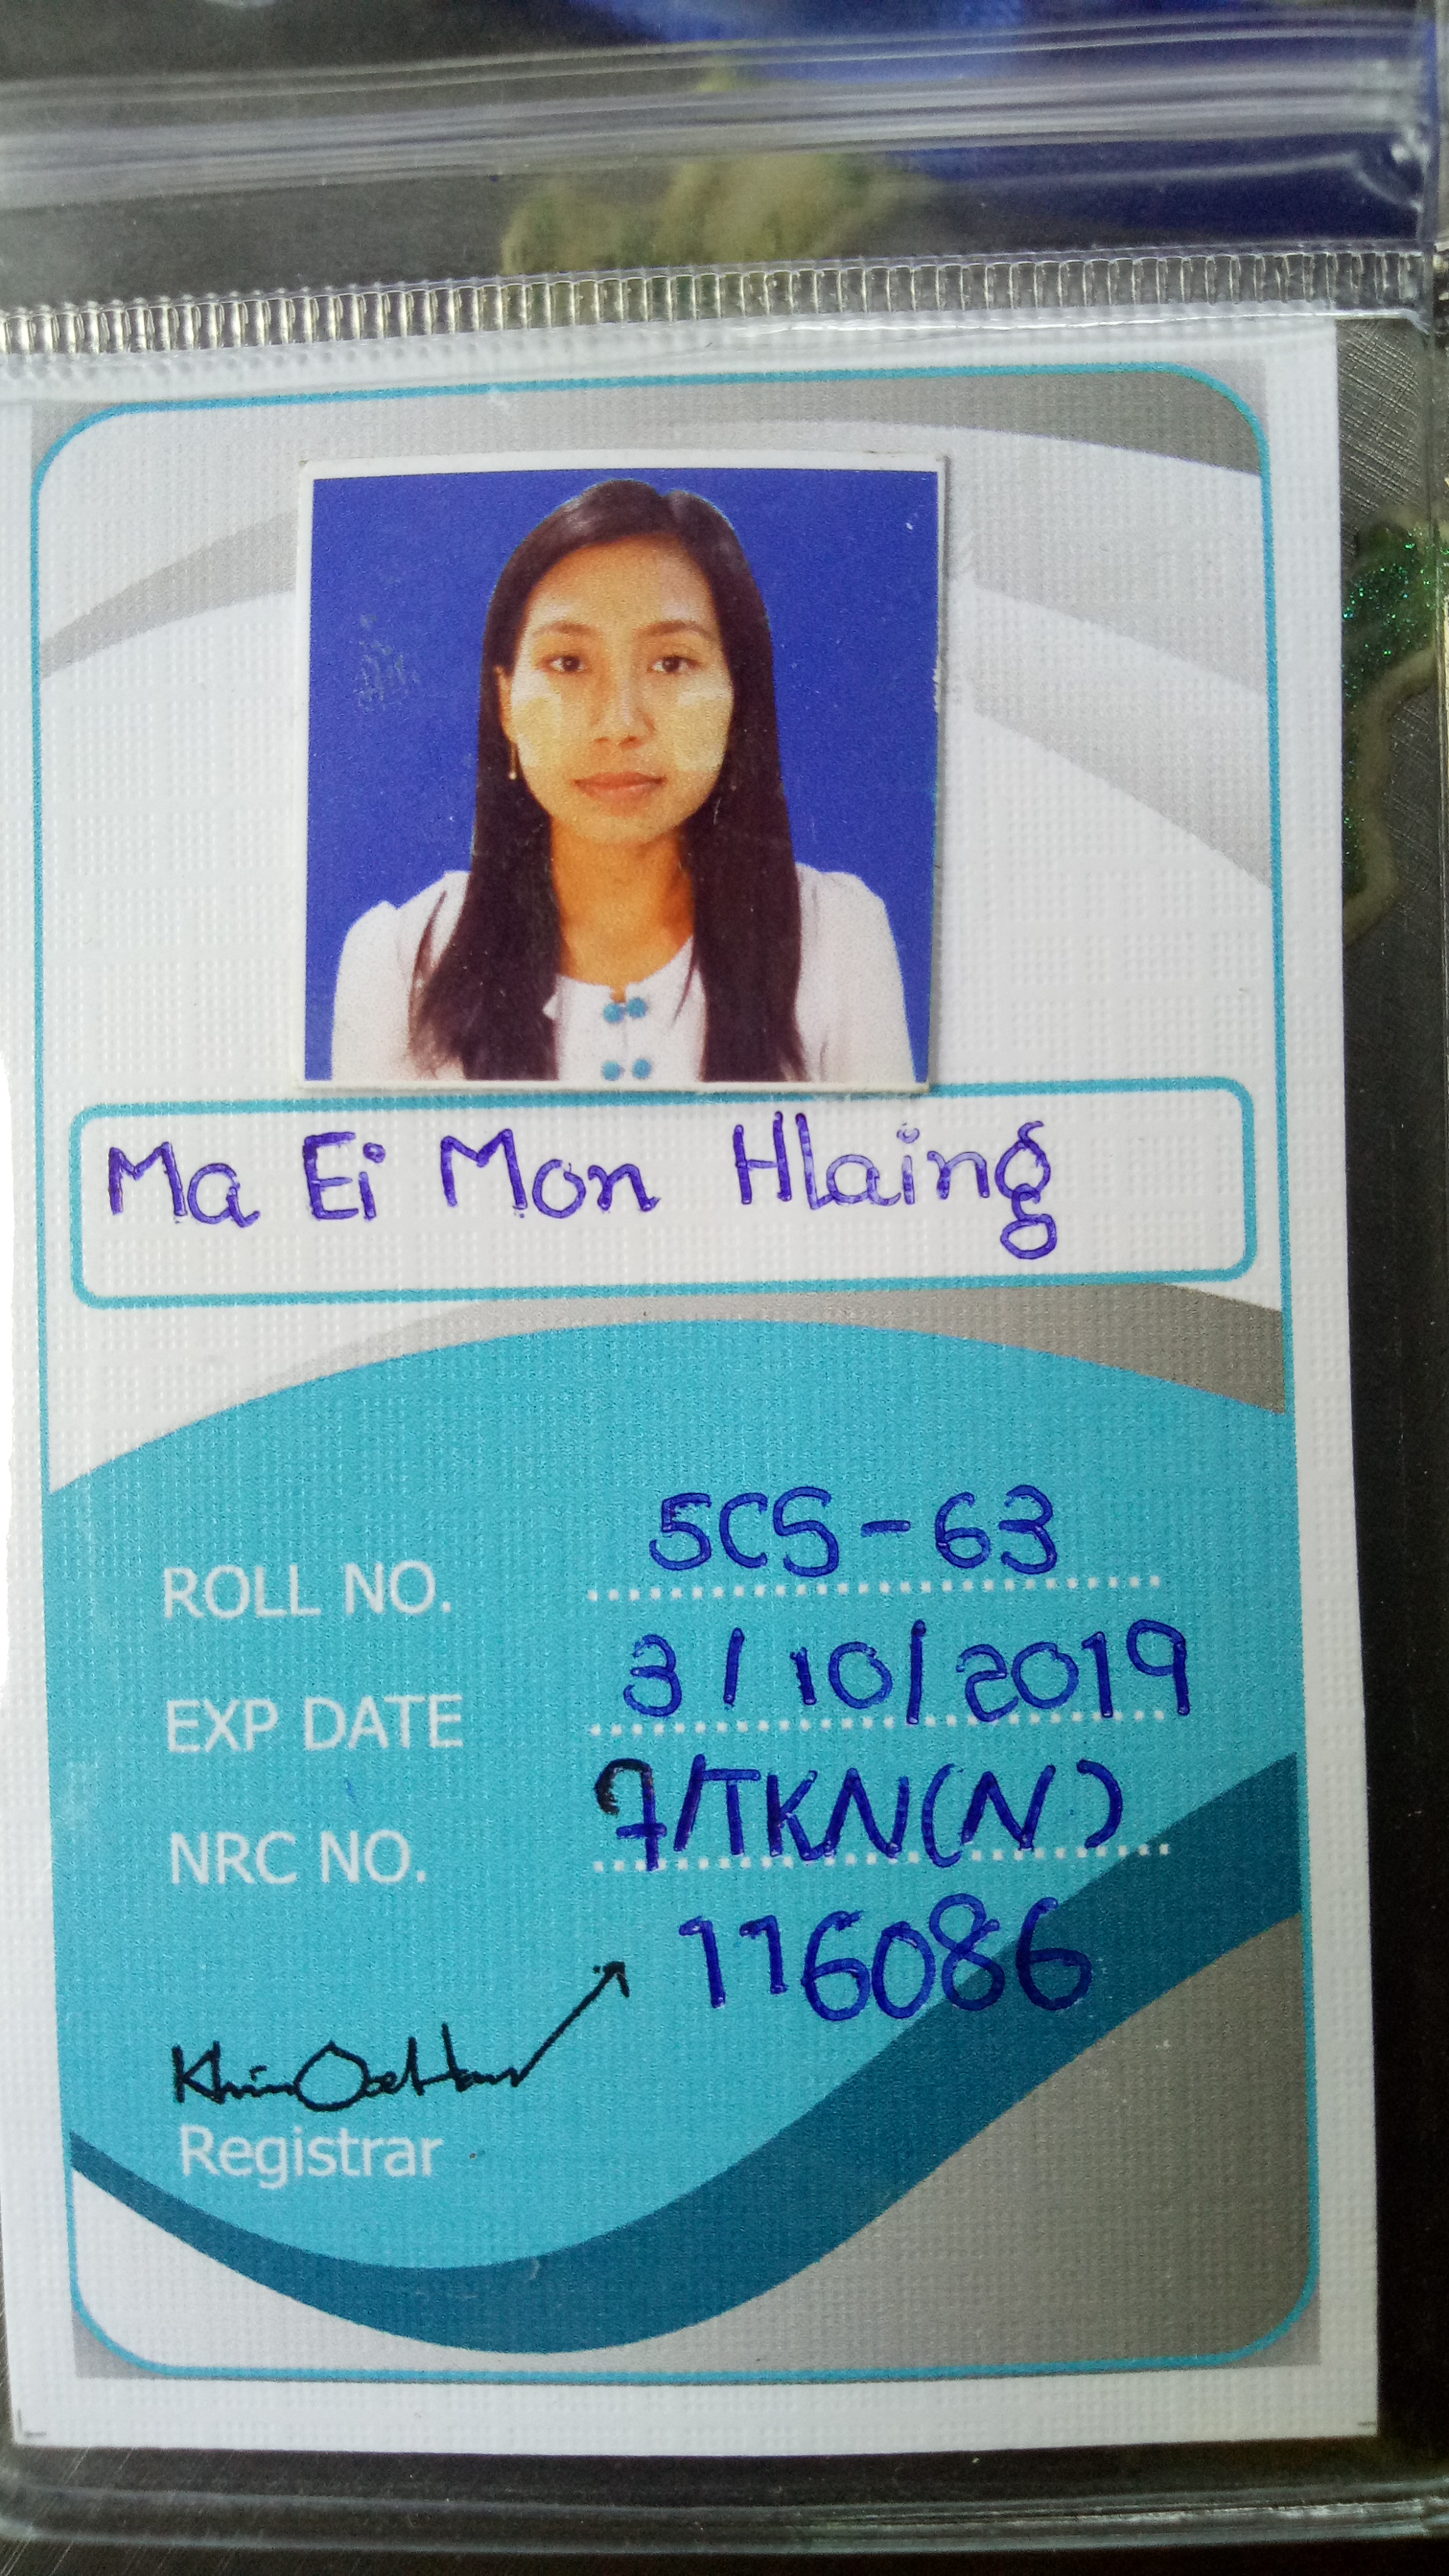 Ma Ei Mon Hlaing
ROLL NO. 5CS-63
EXP DATE 3/10/2019
NRC NO. 7/TKN(N)
116086
Registrar